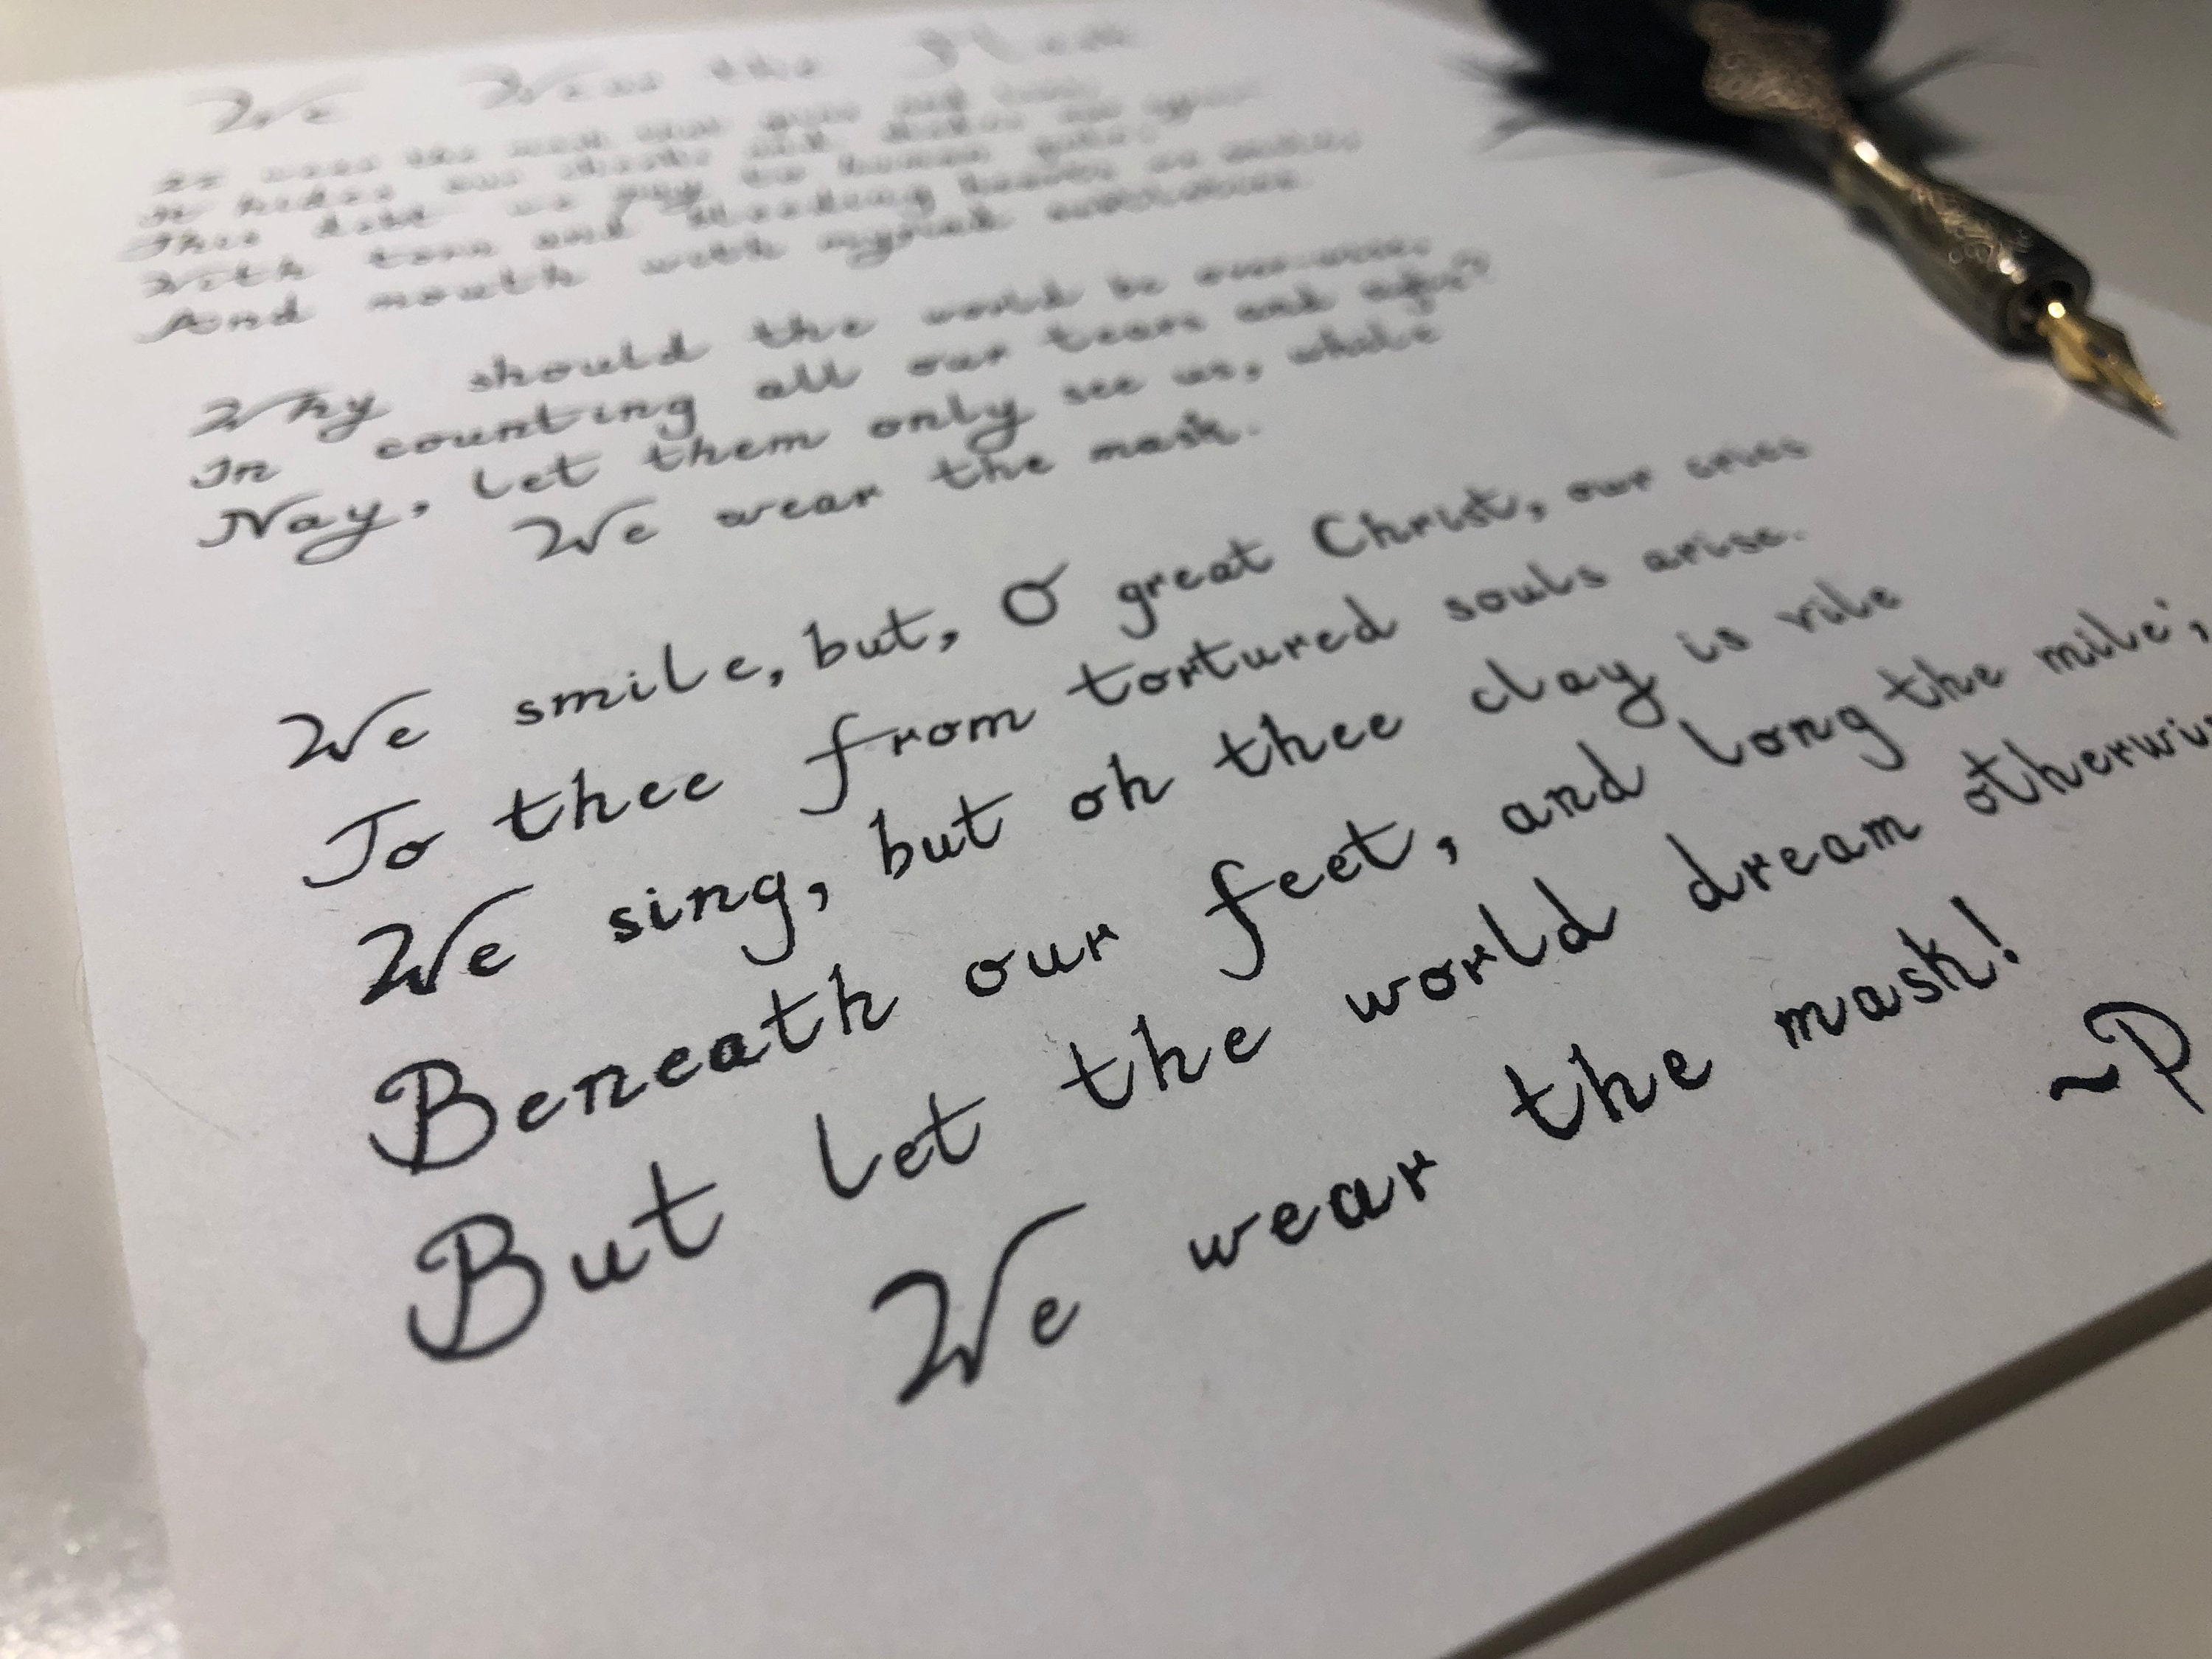 We Wear the Mask
We wear the mask that grins and lies,
It hides our cheeks and shades our eyes
This debt we pay to human guile;
With torn and bleeding hearts we smile,
And mouth with myriad subtleties.
Why should the world be over-wise,
In counting all our tears and sighs?
Nay, let them only see us, while
We wear the mask.
We smile, but, O great Christ, our cries
To thee from tortured souls arise.
We sing, but oh thee clay is vile
Beneath our feet, and long the mile;
But let the world dream otherwis
We wear the mask!
~P